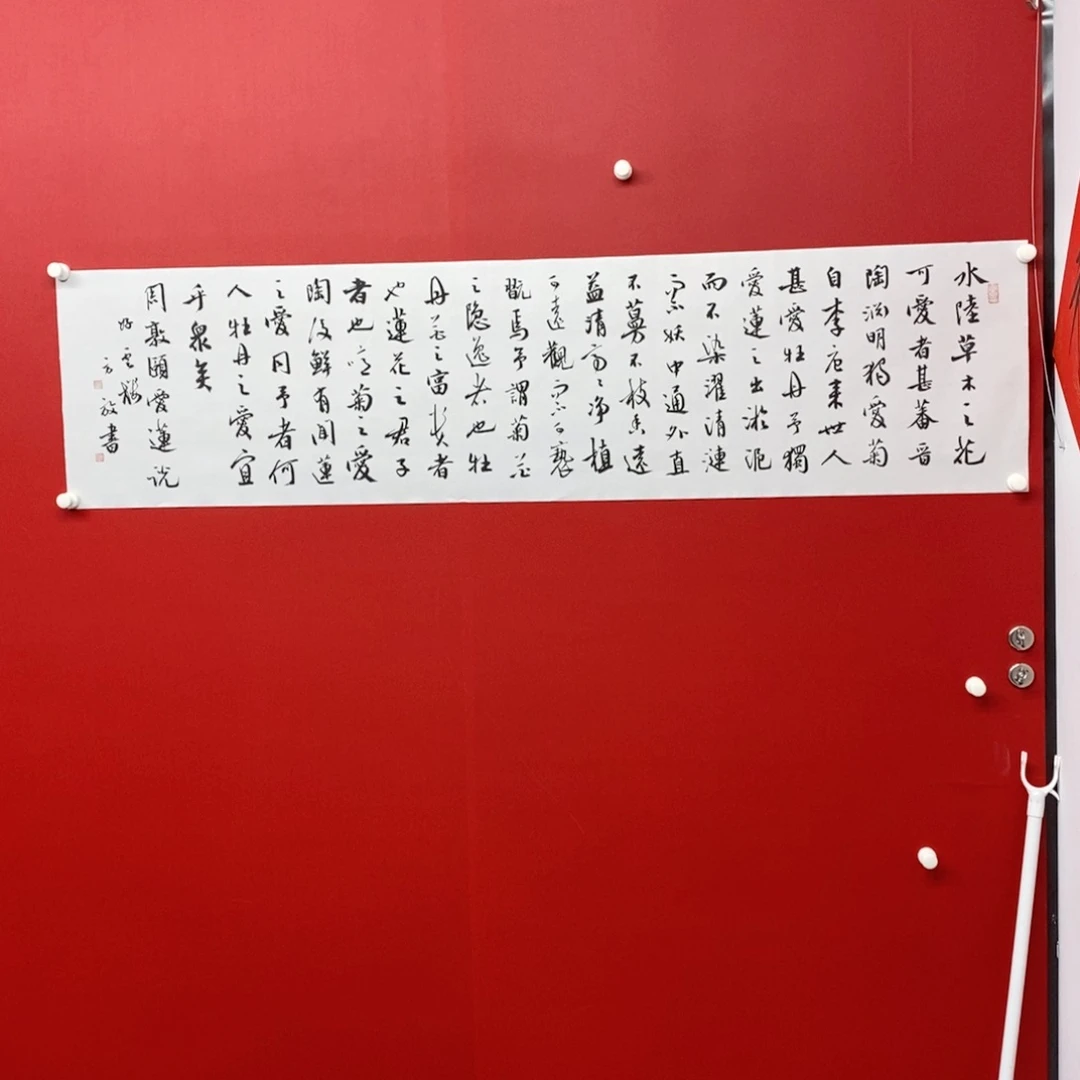 水陸草木之花
可愛者甚蕃晋
陶渊明独愛菊
自李唐来世人
甚愛牡丹予獨
愛蓮之出淤泥
而不染濯清漣
而不妖中通外直
不蔓不枝香遠
益清亭亭净植
可遠觀而不可褻
翫焉予謂菊花
之隐逸者也牡
丹花之富貴者
也蓮花之君子
者也噫菊之愛
陶後鮮有聞蓮
之愛同予者何
人牡丹之愛宜
乎衆矣
周敦頤愛蓮説
書